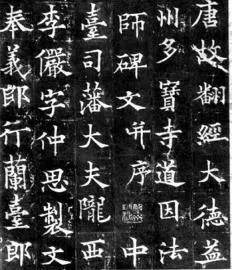 唐故翻經大德益
州多寶寺道因法
師碑文并序 中
臺司藩大夫隴西
李儼字仲思製文
奉義郎行蘭臺郎